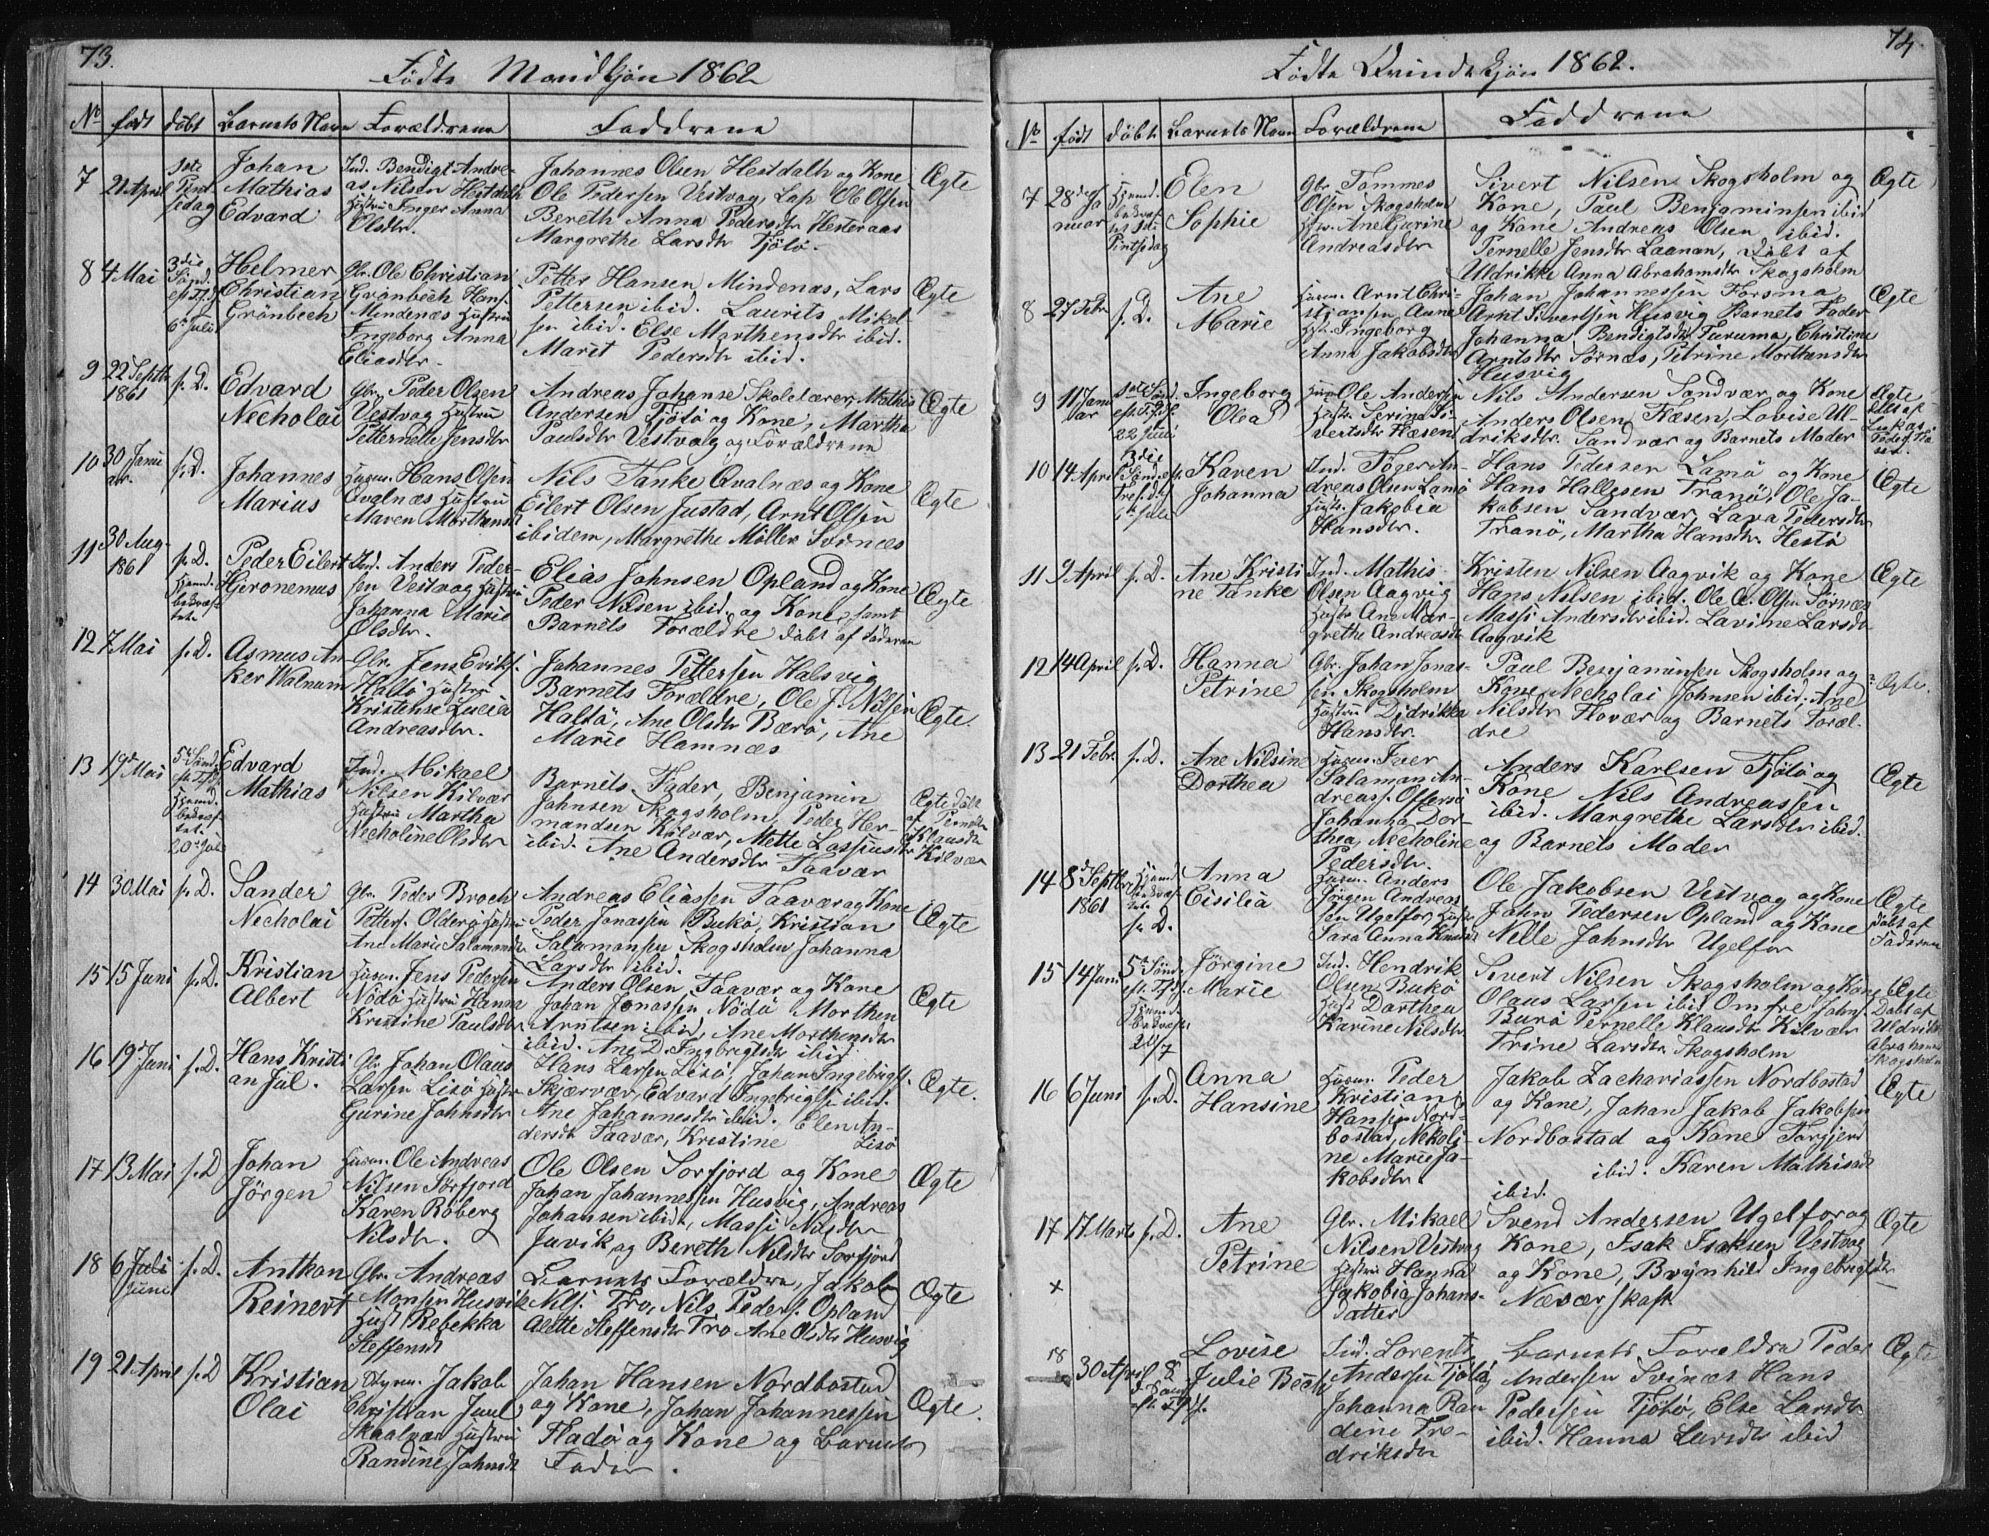 73.
Födte Mandkjön 1862
No födt döbt Barnets Navn Forældrene Faddrene
7
21 April
1ste Pint
sedag
Johan
Mathias
Edvard
Ind. Bendigt Andre-
as Nilsen Hestdalh
Hustru Inger Anna
Olsdtr.
Johannes Olsen Hestdalh og Kone
Ole Pedersen Vestvog, Lap Ole Olsen
Bereth Anna Pedersdtr Hesteraas
Margrethe Larsdtr Tjötö.
Ægte
8
4 Mai
3die
Sönd.
eft. Trf.
6te Juli
Helmer
Christian
Grönbech
Gbr. Ole Christian
Grönbech Hans.
Mindenæs Hustru
Ingeborg Anna
Eliasdtr.
Petter Hansen Mindenæs, Lars
Pettersen ibid. Laurits Mikel
sen ibid. Else Marthensdtr ibid.
Marit Pedersdtr ibid.
Ægte
9
22 Septbr
1861
s. D.
Edvard
Necholai
Gbr. Peder Olsen
Vestvog Hustru
Petternelle Jensdtr
Andreas Johanse Skolelærer, Mathis
Andersen Tjötö og Kone, Martha
Paulsdtr Vestvog og Forældrene
Ægte
10
30 Janu
ar.
s. D.
Johannes
Marius
Husm. Hans Olsen
Qvalnæs Hustru
Maren Morthensd
Nils Tanke Qvalnæs og Kone
Eilert Olsen Justad, Arnt Olsen
ibidem, Margrethe Möller Svinæs
Ægte
11
30 Aug.
1861
s. D.
Hjemd.
bekræf-
tet.
Peder Eilert
Hjeronemus
Ind. Anders Peder-
sen Vestvog Hustru
Johanna Marie
Olsdtr.
Elias Johnsen Opland og Kone
Peder Nilsen ibid. og Kone, samt
Barnets Forældre döbt af Faderen
Ægte
12
7 Mai
s. D.
Asmus An-
ker Walnum
Gbr. Jens Eriks.
Haltö Hustru
Kristense Lucia
Andreasdtr.
Johannes Pettersen Halsvig
Barnets Forældre, Ole J. Nilsen
Haltö, Ane Olsdtr Bærö, Ane
Marie Hamnæs
Ægte.
13
19de Mai
5te Sönd.
eft. Trf.
Hjemd.
bekræf-
tet.
20de Juli
Edvard
Mathias
Ind. Mikael
Nilsen Kilvær
Hustru Martha
Necholine Olsdtr
Barnets Fader, Benjamin
Johnsen Skogsholm, Peder Her-
mandsen Kilvær, Mette Lassiusdtr
ibid. Ane Andersdtr Taavær
Ægte döbt
af Pernelle
Klausdtr
Kilvær
14
30 Mai
s. D.
Sander
Necholai
Gbr. Peder Broch
Petters. Olderö Hustru
Ane Marie Salamonsdtr
Andreas Eliassen Taavær og Kone
Peder Jonassen Bukö, Kristian
Salamonsen Skogsholm Johanna
Larsdtr ibid.
Ægte
15
15 Juni
s. D.
Kristian
Albert
Husm. Jens Pedersen
Nödö Hustru Hanna
Kristine Paulsdtr
Anders Olsen Taavær og Kone
Johan Jonassen Nödö Morthen
Arntsen ibid, Ane Morthensdtr
ibid. Ane D. Ingebrigtsdtr ibid
Ægte
16
19de Juni
s. D.
Hans Kristi
an Jul.
Gbr. Johan Olaus
Larsen Lisö Hustru
Gurine Johnsdtr
Hans Larsen Lisö, Johan Ingebrigts.
Skjærvær, Edvard Ingebrigts. ibid.
Ane Johannesdtr ibid. Elen An-
dersdtr Taavær, Kristine Lisö
Ægte.
17
13 Mai
s. D
Johan
Jörgen
Husm. Ole Andreas
Nilsen Sörfjord
Karen Röberg
Nilsdtr.
Ole Olsen Sorfjord og Kone
Johan Johannessen Husvig, Andreas
Johansen ibid, Massi Nilsdtr
Juvik og Bereth Nilsdtr Sorfjord
Ægte
18
6 Juli
Juni
s. D.
Anthon
Reinert
Gbr. Andreas
Monsen Husvik
Hust. Rebekka
Steffensd
Barnets Forældre, Jakob
Nils. Tro, Nils Peders. Opland
Alette Steffensdtr Tro Ane Olsdtr Husvig
Ægte
19
21 April
s. D
Kristian
Olai
Jakob
Christian Juul
Skaalvær Hustru
Randine Johnsdt
Johan Hansen Nordbostad
og Kone, Johan Johannessen
Fladö og Kone og Barnets
Fader.
Ægte.
74.
Födte Qvindekjön 1862.
No födt döbt Barnets Navn Forældrene Faddrene
7
28de Ja
nuar
Hjemd.
bekræf
tet 1ste
Pintsdag
Elen
Sophie
Gbr. Tommes
Olsen Skogsholm
Hstr. Ane Gurine
Andreasdtr
Sivert Nilsen Skogsholm og
Kone, Paul Benjaminsen ibid
og Kone Andreas Olsen ibid.
Pernelle Jensdtr Laanan, Döbt af
Uldrikke Anna Abrahamsdtr Skogsholm
Ægte
8
27 Febr
s. D.
Ane
Marie
Husm. Arnt Chri-
stjansen, Aune
Hst. Ingeborg
Anna Jakobsdtr
Johan Johannessen Forsmo
Arnt Sivertsen Husvig Barnets Fader
Johanna Bendigtsdtr Furumo, Christine
Arntsdtr Sörnæs, Petrine Morthensdtr
Husvig
Ægte
9
11 Janu
ar
1ste Sönd.
eft. Trf.
22 Juni
Ingeborg
Olea
Husm. Ole Andersen
Hustr. Serine Si-
vertsdtr Flæsen
Nils Andersen Sandvær og Kone
Anders Olsen Flæsen, Lovise Ul-
driksdtr. Sandvær og Barnets Moder
Ægte
döbt af
Lukas
Peders. Flæ
sen.
10
14 April
3die
Sönd. eft.
Trefold.
6te Juli
Karen
Johanna
Ind. Töger An-
dreas Olsen Lamö
Hustr. Jakobia
Hansdtr.
Hans Pedersen Lamö og Kone
Hans Hallesen Tranö, Ole Ja-
kobsen Sandvær, Lava Pedersdtr
Tranö, Martha Hansdtr Hestö
Ægte
11
9 April
s. D.
Ane Kristi
ne Tanke
Ind. Mathis
Olsen Aagvig
Hustr. Ane Mar-
grethe Andreasdt
Kristen Nilsen Aagvik og Kone
Hans Nilsen ibid. Ole A. Olsen Sörnæs
Massi Andersdtr ibid. Lavine Larsdtr
Aagvik
Ægte
12
14 April
s. D.
Hanna
Petrine
Gbr. Johan Jonas-
sen Skogsholm
Hustru Didrikka
Hansdtr.
Paul Benjaminsen Skogsholm og
Kone, Necholai Johnsen ibid, Ane
Nilsdtr Flovær og Barnets Foræl-
dre
Ægte.
13
21 Febr.
s. D.
Ane Nilsine
Dorthea
Husm. Iver
Salaman An-
dreass. Offersö
Johanna Dor-
thea Necholine
Pedersdtr.
Anders Karlsen Tjötö og
Kone Nils Andreassen
ibid. Margrethe Larsdtr ibid.
og Barnets Moder
Ægte
14
8de Septbr
1861
Hjemd.
bekræf-
tet.
s. D.
Anna
Cisilia
Husm. Anders
Jörgen Andreas
sen Ugelfor, Hustr
Sara Anna Knudsd
Ole Jakobsen Vestvog og Kone
John Pedersen Opland og Kone
Nelle Johnsdtr Ugelfor
Ægte
döbt af
Faderen
15
14 Juni
5te Sönd.
eft. Trf.
Hjemd.
bekræft.
20/7
Jörgine
Marie
Ind. Hendrik
Olsen Bukö
Hust Dorthea
Karine Nilsdtr
Sivert Nilsen Skogsholm og Kone
Olaus Larsen ibid Omfre Johns.
Burö Pernelle Klausdtr Kilvær
Trine Larsdtr Skogsholm
Ægte
Döbt af
Uldrikke
Abrahams
Skogsholm
16
6 Juni
s. D.
Anna
Hansine
Husm. Peder
Kristian
Hansen Nord-
bostad, Nekoli-
ne Marie Ja-
kobsdtr
Jakob Zachariassen Nordbostad
og Kone, Johan Jakob Jakobsen
Nordbostad og Kone Torgjerd
ibid. Karen Mathisdtr
ibid.
Ægte
17
17 Marts
s. D.
Ane
Petrine
Gbr. Mikael
Nilsen Vestvog
Hustru Hanna
Jakobia Johans-
datter
Svend Andersen Ugelfor og
Kone, Isak Isaksen Vestvog
og Kone, Brynhild Ingebrigtsdtr
Næværskaft
Ægte
×
18
30 April
8
Lovise
Julie Bech
Ind. Lorents
Andersen Tjötö og
Johanna Ran
dine Fre-
driksdtr
Barnets Forældre Peder
Andersen Svinæs Hans
Pedersen Tjötö, Else Larsdtr
ibid. Hanna Larsdtr ibid
Ægte